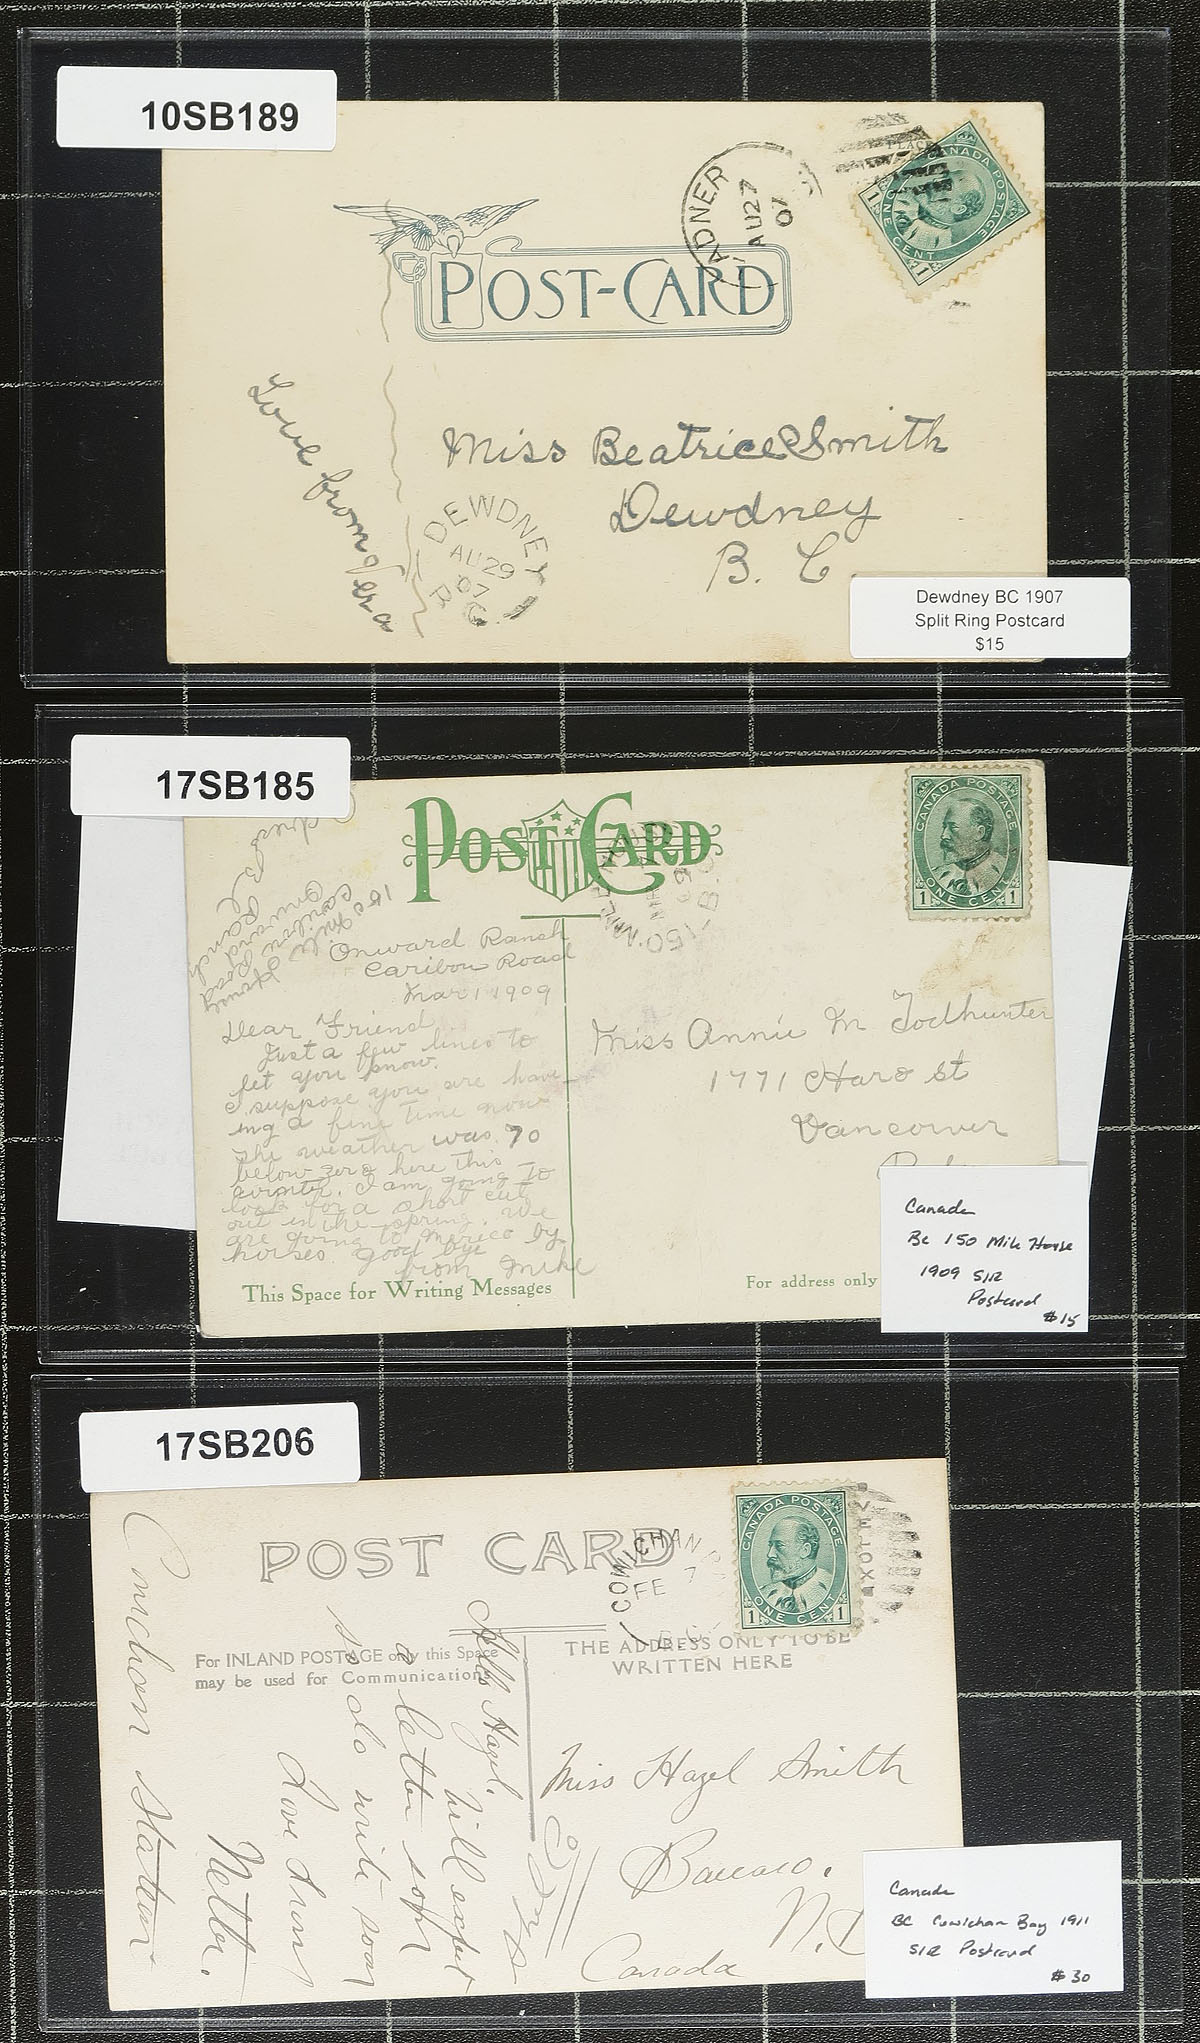 10SB189
LADNER
AU 27
07
CANADA POSTAGE
ONE CENT
1 1
POST-CARD
Love from Vera
Miss Beatrice Smith
Dewdney
B. C
DEWDNEY
AU 29
07
B.C
Dewdney BC 1907
Split Ring Postcard
$15
17SB185
POST CARD
CANADA POSTAGE
ONE CENT
1 1
150 MILE
B.C
150 Mile
Cariboo Road
Onward Ranch
Onward Ranch
Caribou Road
Mar 1 1909
Dear Friend
Just a few lines to
let you know.
I suppose you are hav-
ing a fine time now
the weather was 70
below zero here this
winter. I am going to
look for a short cut
out in the spring. we
are going to Mexico by
horses good bye
from Mike
Miss Annie M Todhunter
1771 Haro st
Vancouver
This Space for Writing Messages
For address only
Canada
Bc 150 Mile House
1909 S/R
Postcard
$15
17SB206
POST CARD
COWICHAN
FE 7
B.C.
CANADA POSTAGE
ONE CENT
1 1
For INLAND POSTAGE only this Space
may be used for Communication
THE ADDRESS ONLY TO BE
WRITTEN HERE
Hello Hazel.
Will expect
a letter soon
so do write soon
Love from
Nettie.
Cowichan Station
Miss Hazel Smith
Canada
Canada
BC Cowichan Bay 1911
S/R Postcard
$30